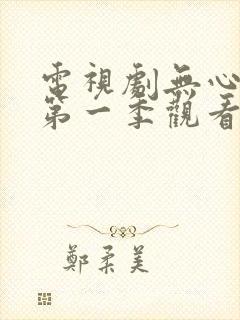 電視劇無心
第一季觀看
鄭柔美